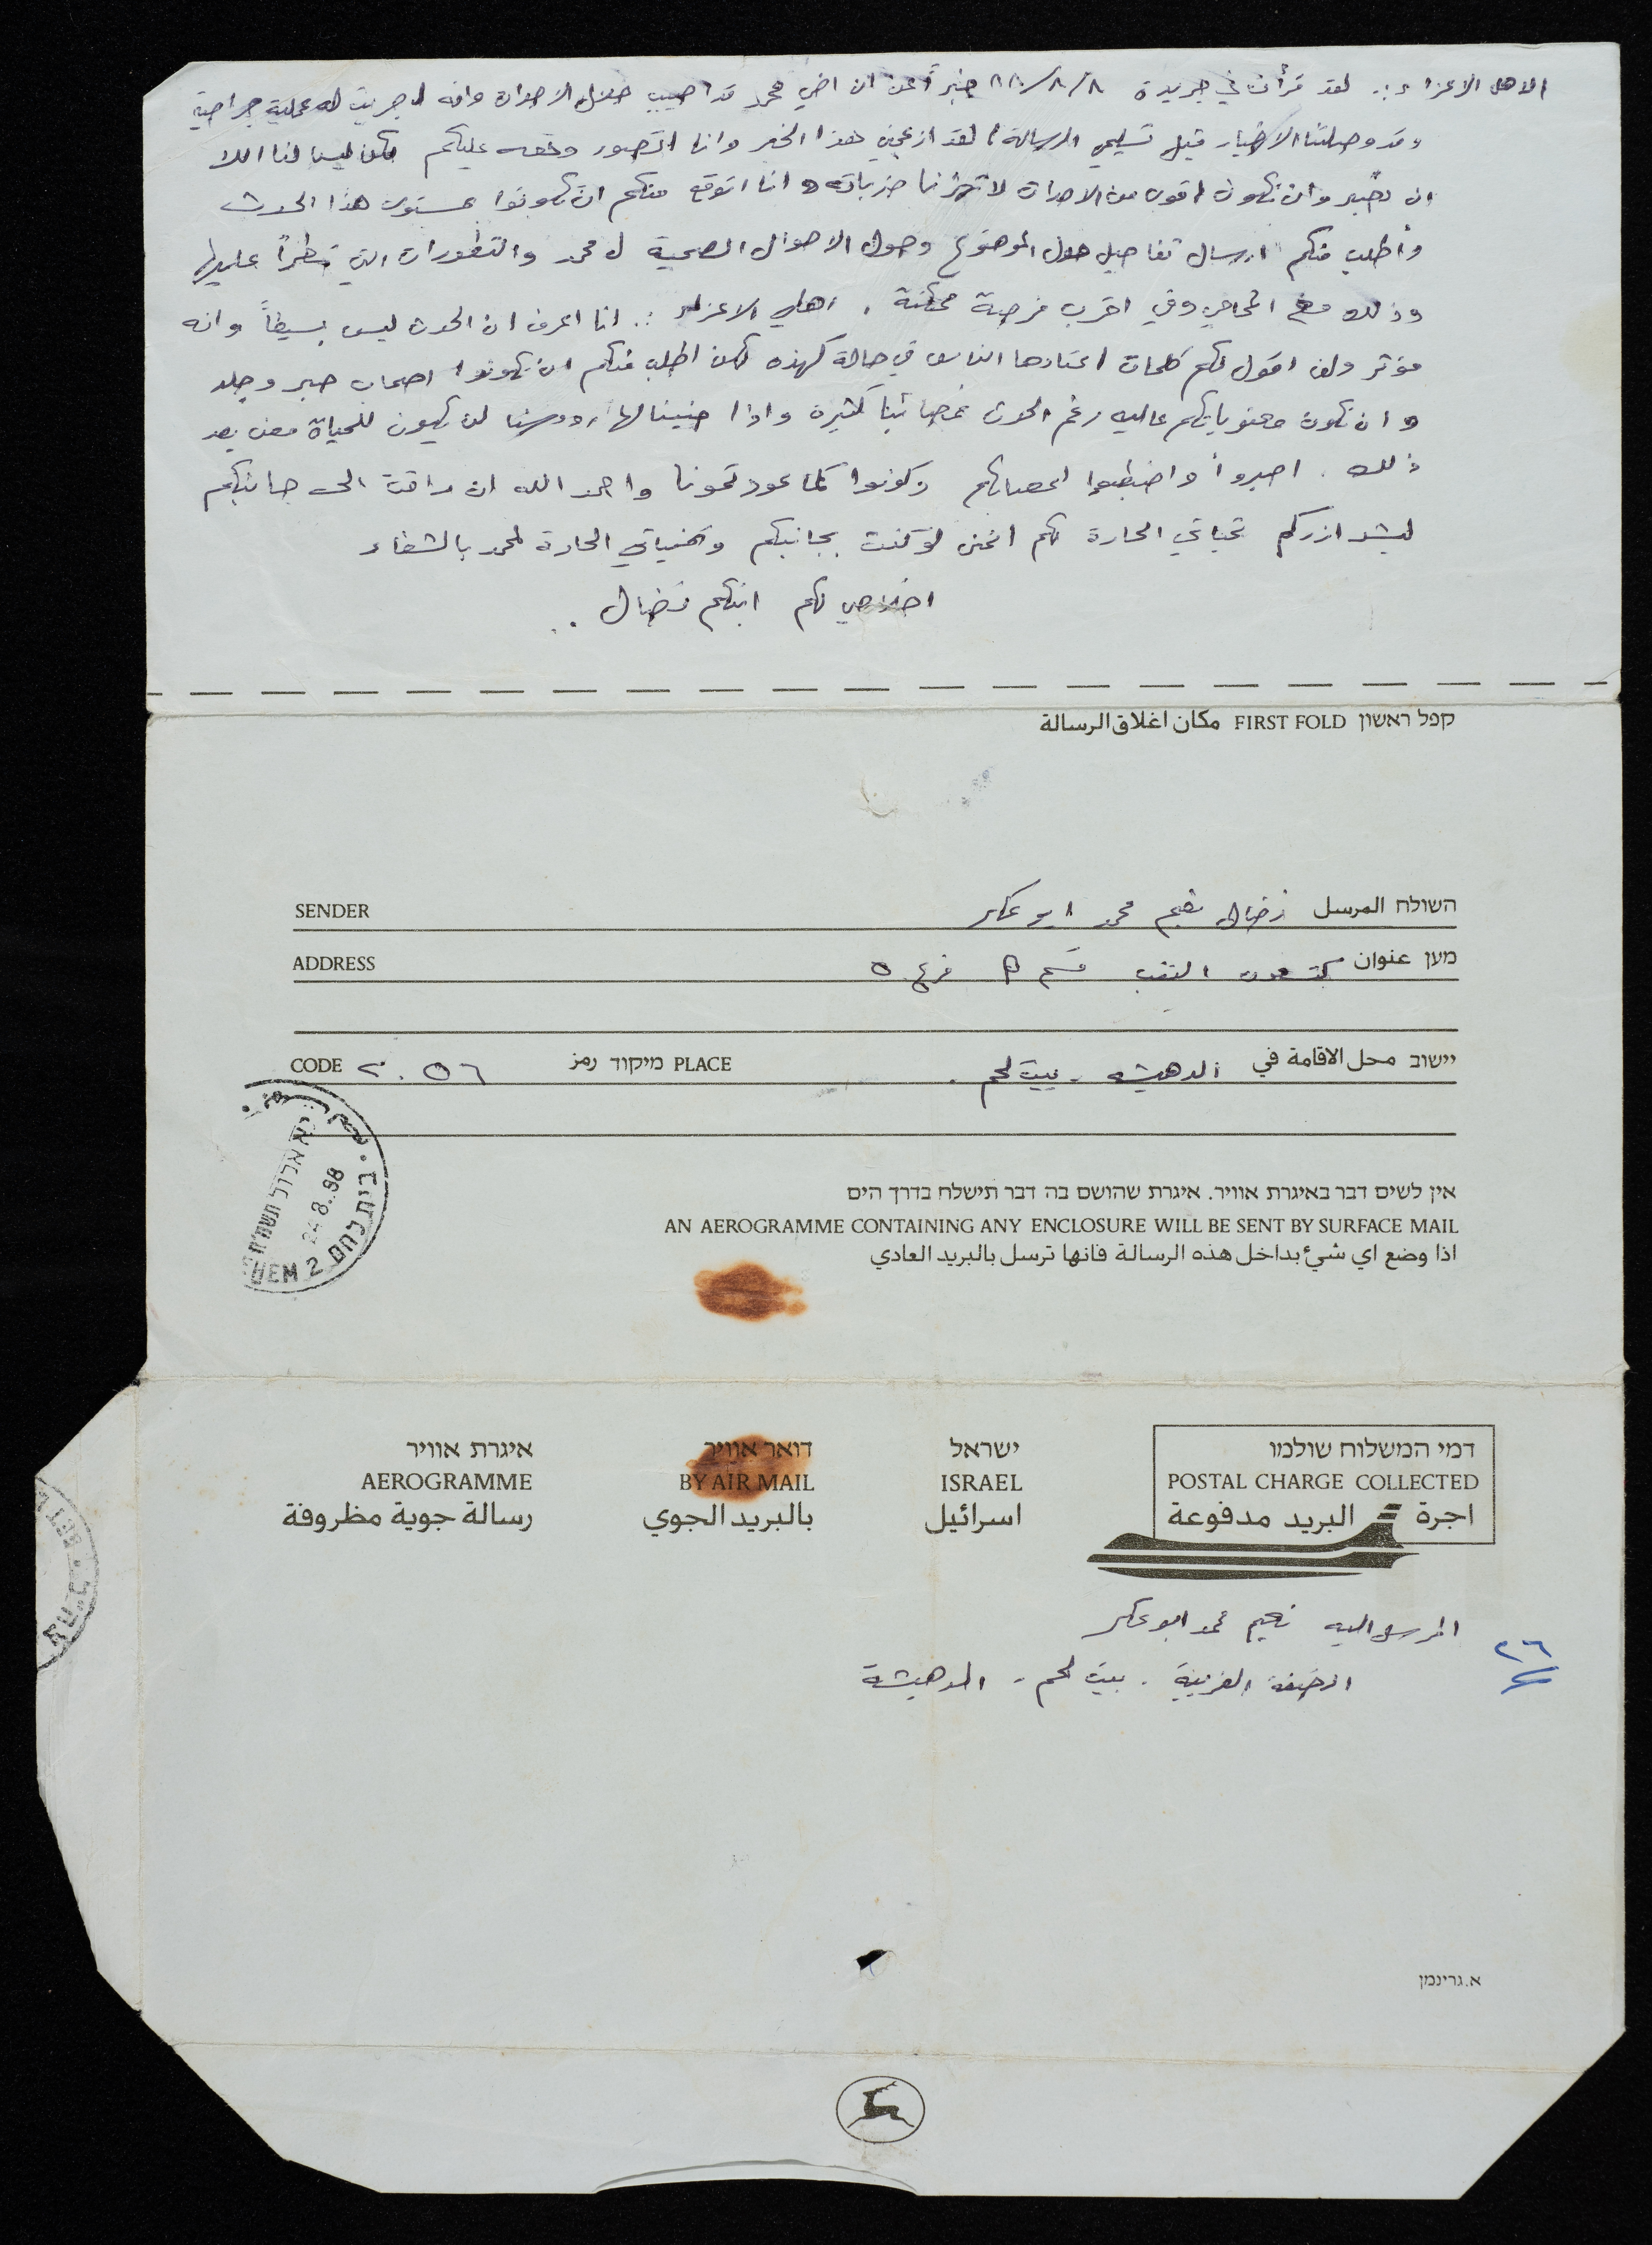 الاهل الاعزاء :. لقد قرأت في جريدة ٨٨/٨/٨ خبراً عن ان اخي محمد قد اصيب خلال الاحداث وانه اجريت له عملية جراحية
وقد وصلتنا الاخبار قبل تسليمي الرسالة، لقد ازعجني هذا الخبر وانا اتصور وقعه عليكم لكن ليس لنا الا
ان نصبر وان نكون اقوى من الاحداث لا تهزنا ضرباته وانا اتوقع منكم ان تكونوا بمستوى هذا الحدث
وأطلب منكم ارسال تفاصيل حول الموضوع وحول الاحوال الصحية ل محمد والتطورات التي تطرأ عليها
وذلك مع المحامي وفي اقرب فرصة ممكنة . اهلي الاعزاء :. انا اعرف ان الحدث ليس بسيطاً وانه
مؤثر ولن اقول لكم كلمات اعتادها الناس في حالة كهذه لكن اطلب منكم ان تكونوا اصحاب صبر وجلد
وان تكون معنوياتكم عاليه رغم الحدث فمصائبنا كثيرة واذا حنينا لها رؤوسنا لن يكون للحياة معنى بعد
ذلك . اصبروا واضبطوا اعصابكم وكونوا كما عودتمونا واحمد الله ان رافت الى جانبكم
ليشد ازركم تحياتي الحارة لكم اتمنى لو كنت بجانبكم وتمنياتي الحارة لمحمد بالشفاء
اخلاصي لكم ابنكم نضال ..
קפל ראשון FIRST FOLD مكان اغلاق الرسالة
השולח المرسل نضال نعيم محمد ابو عكر SENDER
מען عنوان كتسعوت النقب قسم ב فرع ٥ ADDRESS
יישוב محل الاقامة في الدهيشه - بيت لحم . PLACE מיקוד رمز ٢٠٥٦ CODE
בית לחם 2 24.8.88
אין לשים דבר באיגרת אוויר. איגרת שהושם בה דבר תישלח בדרך הים
AN AEROGRAMME CONTAINING ANY ENCLOSURE WILL BE SENT BY SURFACE MAIL
اذا وضع اي شيء بداخل هذه الرسالة فانها ترسل بالبريد العادي
דמי המשלוח שולמו ישראל דואר אוויר איגרת אוויר
POSTAL CHARGE COLLECTED ISRAEL BY AIR MAIL AEROGRAMME
اجرة البريد مدفوعة اسرائيل بالبريد الجوي رسالة جوية مظروفة
المرسل اليه نعيم محمد ابو عكر
٢٦
الضفة الغربية - بيت لحم - الدهيشة
א.גרינמן